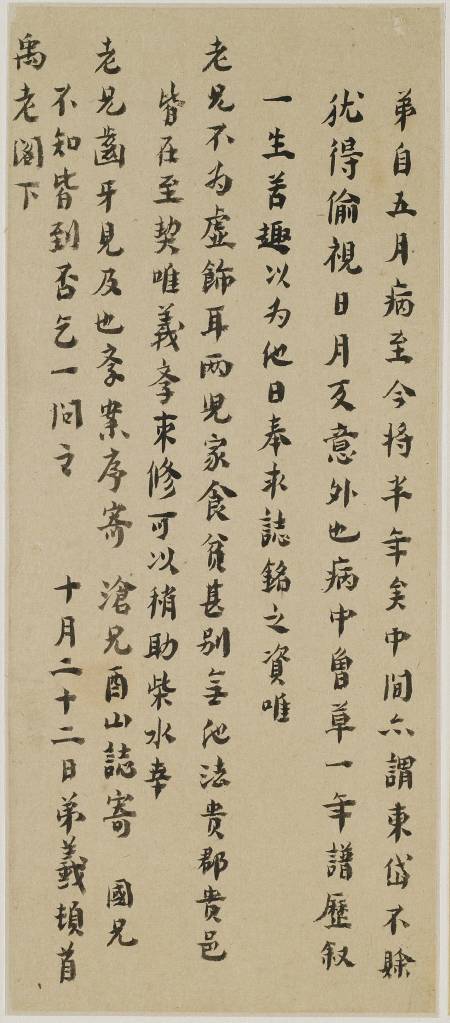 弟自五月病至今將半年矣中間亦謂東岱不賖
犹得偷視日月又意外也病中曾草一年譜歷叙
一生苦趣以为他日奉求誌銘之資唯
老兄不为虛飾耳兩児家食貧甚别無他法貴郡貴邑
皆在至契唯義斈束修可以稍助柴水幸
老兄齒牙見及也斈案序寄 滄兄酉山誌寄 國兄
不知皆到否乞一问之 十月二十二日弟羲頓首
禹老阁下